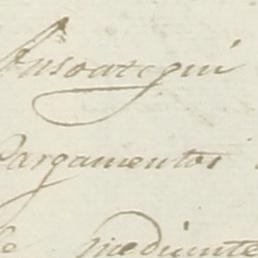 Ansoategui
Cargamentos
mediante